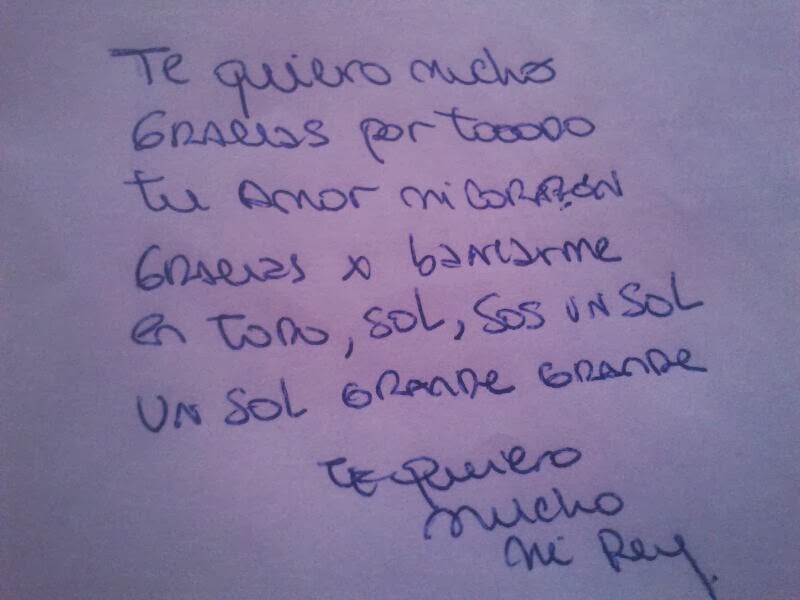 Te quiero mucho
GRACIAS por TOOODO
tu AMOR mi CORAZÓN
GRACIAS x bancarme
en TODO, SOL, SOS UN SOL
UN SOL GRANDE GRANDE
TE quiero
mucho
mi Rey.